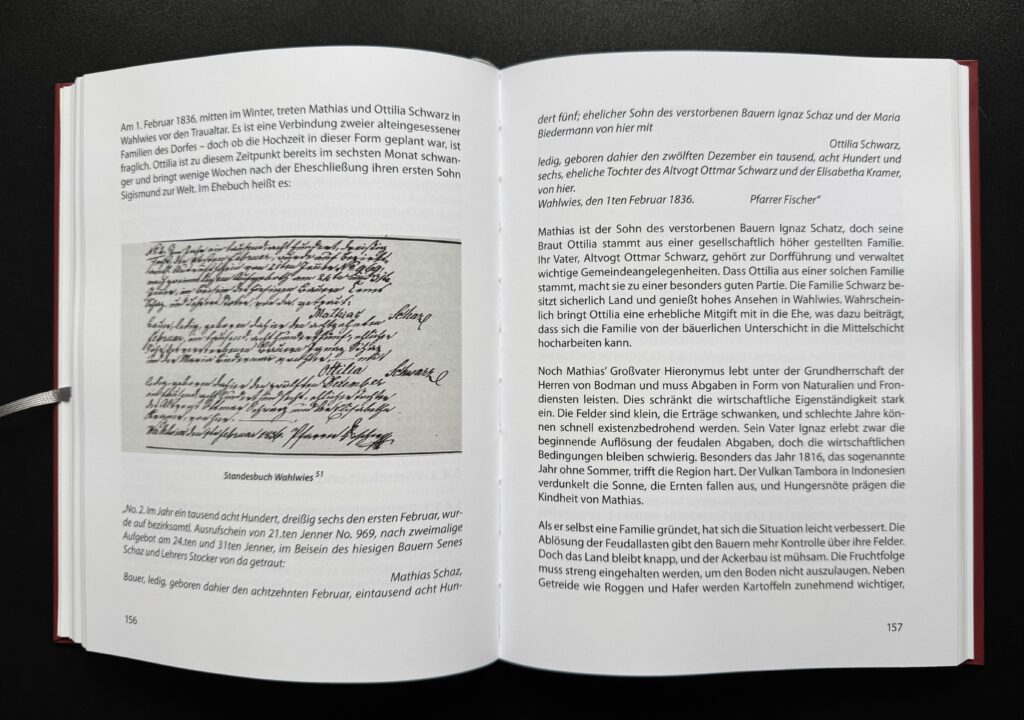 Am 1. Februar 1836, mitten im Winter, treten Mathias und Ottilia Schwarz in
Wahlwies vor den Traualtar. Es ist eine Verbindung zweier alteingesessener
Familien des Dorfes – doch ob die Hochzeit in dieser Form geplant war, ist
fraglich. Ottilia ist zu diesem Zeitpunkt bereits im sechsten Monat schwan-
ger und bringt wenige Wochen nach der Eheschließung ihren ersten Sohn
Sigismund zur Welt. Im Ehebuch heißt es:
Mathias Schaz
Ottilia Schwarz
Standesbuch Wahlwies 51
„No. 2. Im Jahr ein tausend acht Hundert, dreißig sechs den ersten Februar, wur-
de auf bezirksamtl. Ausrufschein von 21.ten Jenner No. 969, nach zweimalige
Aufgebot am 24.ten und 31ten Jenner, im Beisein des hiesigen Bauern Senes
Schaz und Lehrers Stocker von da getraut:
Mathias Schaz,
Bauer, ledig, geboren dahier den achtzehnten Februar, eintausend acht Hun-
156
dert fünf; ehelicher Sohn des verstorbenen Bauern Ignaz Schaz und der Maria
Biedermann von hier mit
Ottilia Schwarz,
ledig, geboren dahier den zwölften Dezember ein tausend, acht Hundert und
sechs, eheliche Tochter des Altvogt Ottmar Schwarz und der Elisabetha Kramer,
von hier.
Wahlwies, den 1ten Februar 1836. Pfarrer Fischer“
Mathias ist der Sohn des verstorbenen Bauern Ignaz Schatz, doch seine
Braut Ottilia stammt aus einer gesellschaftlich höher gestellten Familie.
Ihr Vater, Altvogt Ottmar Schwarz, gehört zur Dorfführung und verwaltet
wichtige Gemeindeangelegenheiten. Dass Ottilia aus einer solchen Familie
stammt, macht sie zu einer besonders guten Partie. Die Familie Schwarz be-
sitzt sicherlich Land und genießt hohes Ansehen in Wahlwies. Wahrschein-
lich bringt Ottilia eine erhebliche Mitgift mit in die Ehe, was dazu beiträgt,
dass sich die Familie von der bäuerlichen Unterschicht in die Mittelschicht
hocharbeiten kann.
Noch Mathias’ Großvater Hieronymus lebt unter der Grundherrschaft der
Herren von Bodman und muss Abgaben in Form von Naturalien und Fron-
diensten leisten. Dies schränkt die wirtschaftliche Eigenständigkeit stark
ein. Die Felder sind klein, die Erträge schwanken, und schlechte Jahre kön-
nen schnell existenzbedrohend werden. Sein Vater Ignaz erlebt zwar die
beginnende Auflösung der feudalen Abgaben, doch die wirtschaftlichen
Bedingungen bleiben schwierig. Besonders das Jahr 1816, das sogenannte
Jahr ohne Sommer, trifft die Region hart. Der Vulkan Tambora in Indonesien
verdunkelt die Sonne, die Ernten fallen aus, und Hungersnöte prägen die
Kindheit von Mathias.
Als er selbst eine Familie gründet, hat sich die Situation leicht verbessert. Die
Ablösung der Feudallasten gibt den Bauern mehr Kontrolle über ihre Felder.
Doch das Land bleibt knapp, und der Ackerbau ist mühsam. Die Fruchtfolge
muss streng eingehalten werden, um den Boden nicht auszulaugen. Neben
Getreide wie Roggen und Hafer werden Kartoffeln zunehmend wichtiger,
157